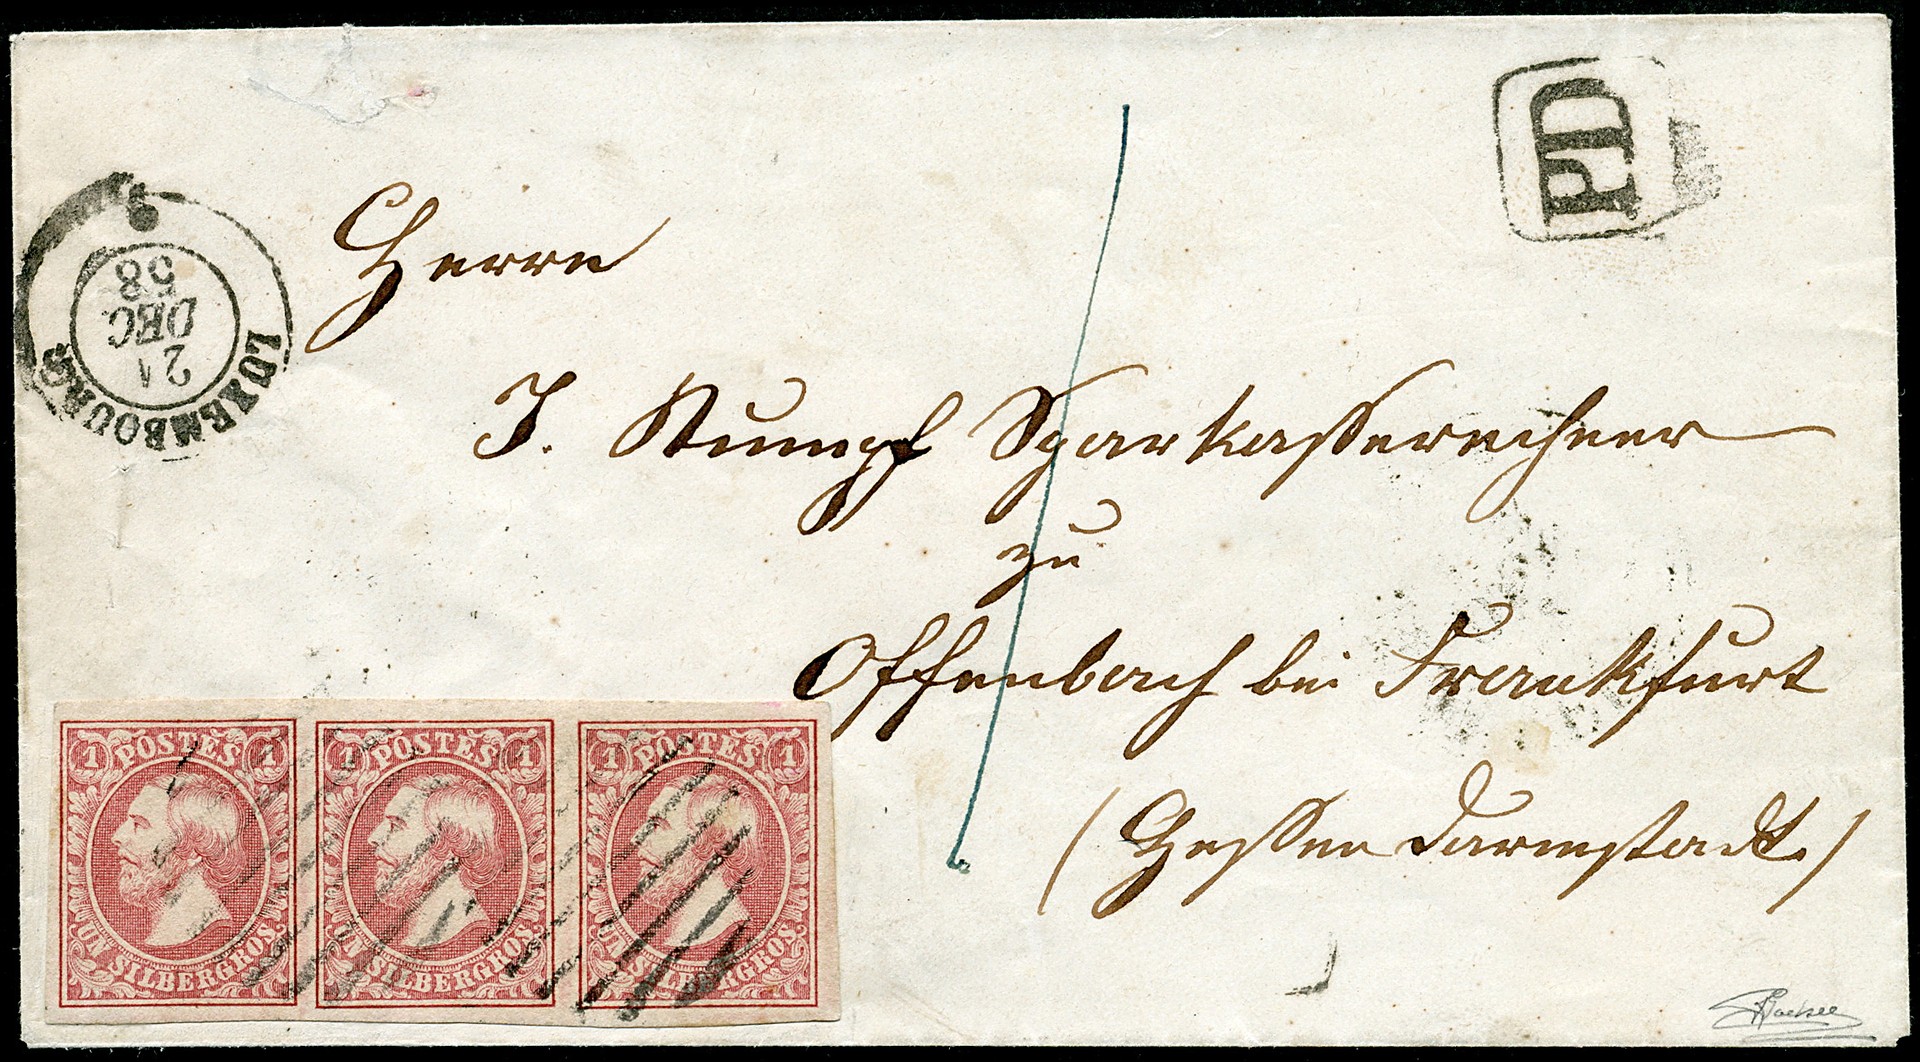 PD
LUXEMBOURG
21
DEC.
58
Herrn
J. Rumpf Sparkasserechner
zu
Offenbach bei Frankfurt
(Hessen Darmstadt.)
1 POSTES 1
UN SILBERGROS.
1 POSTES 1
UN SILBERGROS.
1 POSTES 1
UN SILBERGROS.